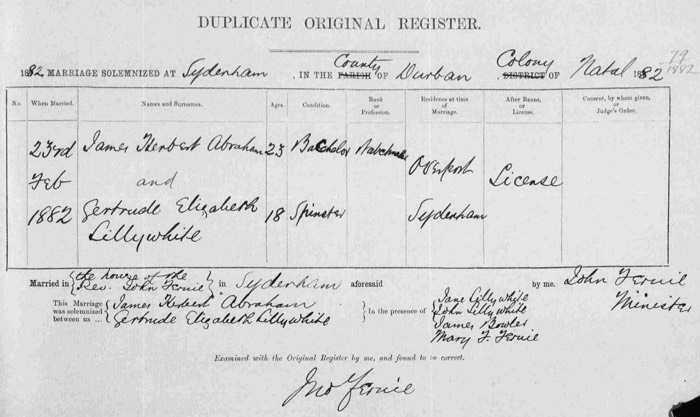 DUPLICATE ORIGINAL REGISTER.
79
1882
1882 MARRIAGE SOLEMNIZED AT Sydenham, IN THE PARISH County OF Durban, DISTRICT Colony OF Natal 1882
No. When Married. Names and Surnames. Ages. Condition. Rank or Profession. Residence at time of Marriage. After Banns, or License. Consent, by whom given, or Judge's Order.
23rd James Herbert Abraham 23 Bachelor Watchmaker Overport
Feb and License
1882 Gertrude Elizabeth 18 Spinster Sydenham
Lillywhite
Married in {the house of the Rev. John Fernie} in Sydenham aforesaid by me. John Fernie
Minister
This Marriage was solemnized between us ... {James Herbert Abraham
Gertrude Elizabeth Lillywhite
In the presence of {Jane Lillywhite
John Lillywhite
James Bowler
Mary F. Fernie
Examined with the Original Register by me, and found to be correct.
Jno Fernie